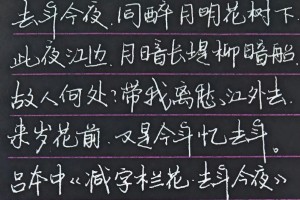 去年今夜.同醉月明花树下.
此夜江边.月暗长堤柳暗船.
故人何处?带我离愁江外去.
来岁花前.又是今年忆去年。
吕本中《减字木兰花·去年今夜》